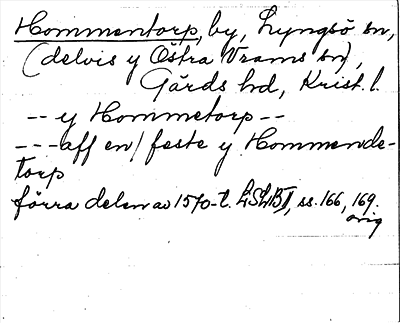 Hommentorp, by, Lyngsö sn,
(delvis y Östra Vrams sn),
Gärds hd, Krist. l.
-- y Hommetorp --
--- aff en / feste y Hommende-
torp
förra delen av 1570-t. LSLB II, ss. 166, 169.
orig